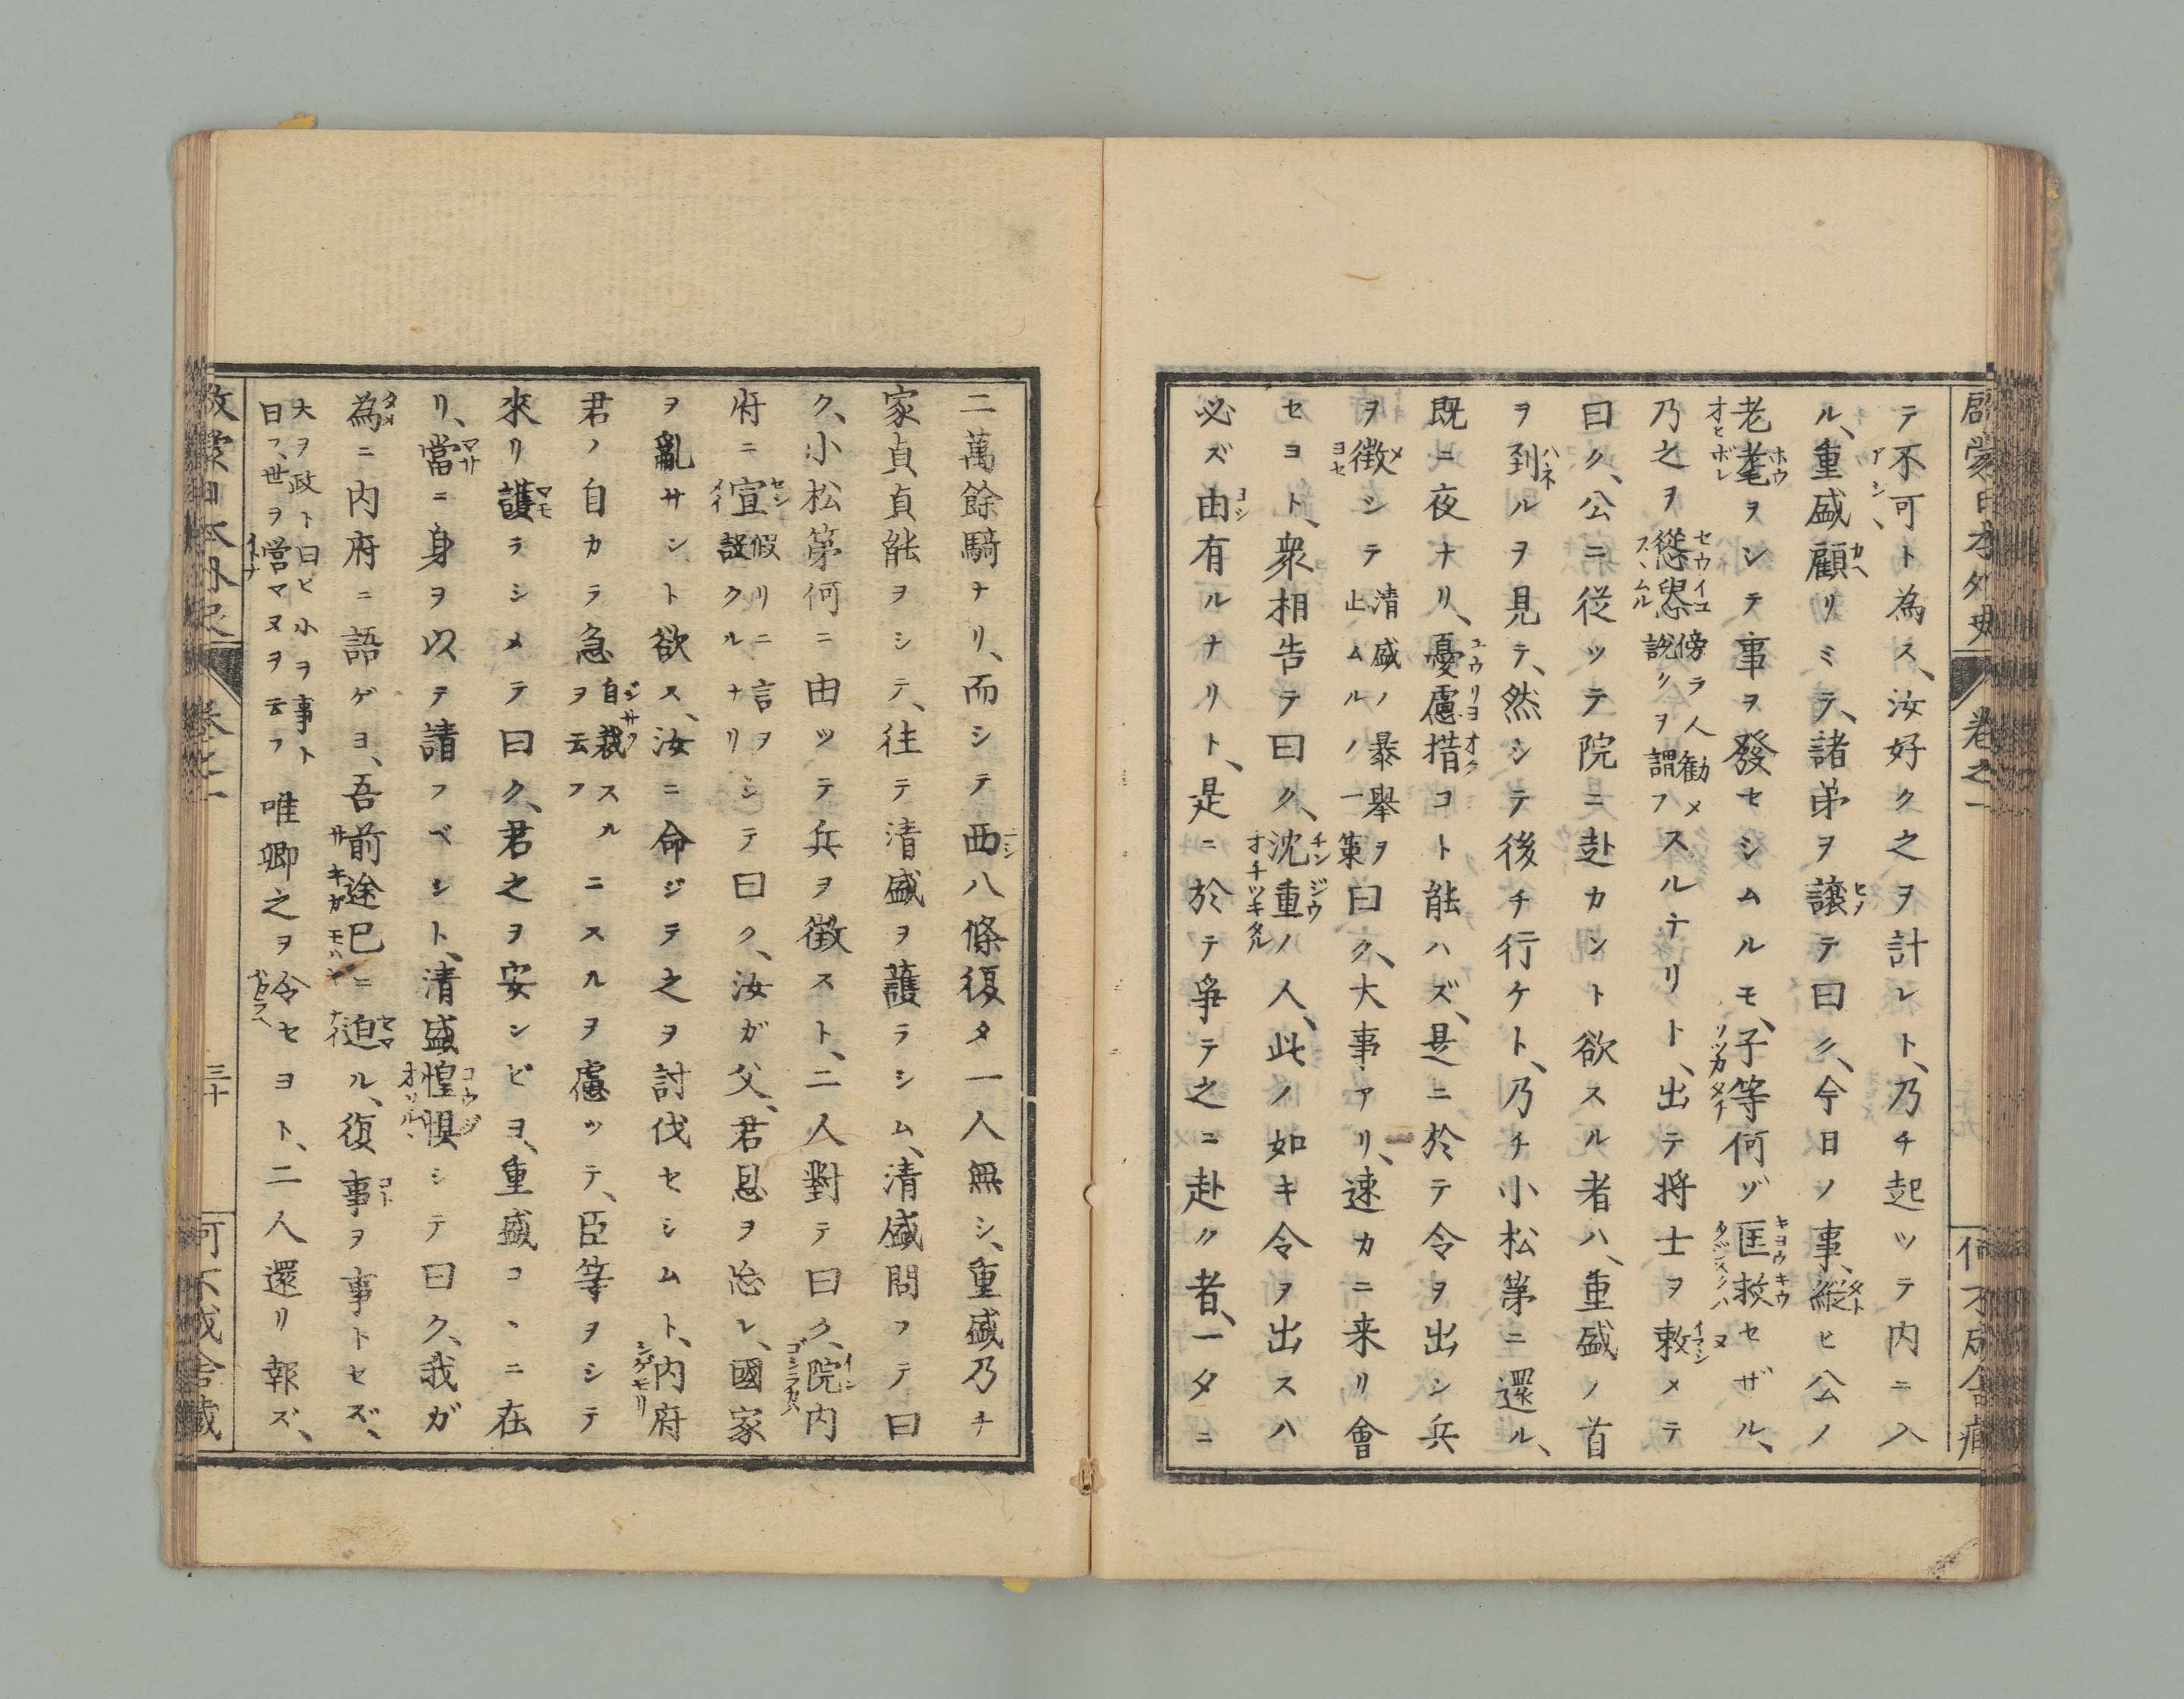 啓蒙日本外史 巻之一 何不成舎蔵
テ不可ト為ス、汝好ク之ヲ計レト、乃チ起ツテ内ニ入
ル、重盛顧リミテ、諸弟ヲ譲テ曰ク、今日ノ事、縦ヒ公ノ
老耄ヲシテ事ヲ發セシムルモ、子等何ゾ匡救セザル、
乃之ヲ慫慂傍ラ人勧メ説クヲ謂フスルナリト、出テ将士ヲ敕メテ
曰ク、公ニ従ツテ院ニ赴カント欲スル者ハ、重盛ノ首
ヲ刎ルヲ見テ、然シテ後チ行ケト、乃チ小松第ニ還ル、
既ニ夜ナリ、憂慮措コト能ハズ、是ニ於テ令ヲ出シ兵
ヲ徴シテ清盛ノ暴擧ヲ止ムルノ一策曰ク、大事アリ、速カニ来リ會
セヨト、衆相告テ曰ク、沈重ノ人、此ノ如キ令ヲ出スハ
必ズ由有ルナリト、是ニ於テ爭テ之ニ赴ク者、一夕ニ
二萬餘騎ナリ、而シテ西八條復タ一人無シ、重盛乃チ
家貞貞能ヲシテ、往テ清盛ヲ護ラシム、清盛問フテ曰
ク、小松第何ニ由ツテ兵ヲ徴スト、二人對テ曰ク、院内
府ニ宣假リニ言ヲ設クルナリシテ曰ク、汝ガ父、君恩ヲ忘レ、國家
ヲ亂サント欲ス、汝ニ命ジテ之ヲ討伐セシムト、内府
君ノ自カラ急自裁スルヲ云フニスルヲ慮ツテ、臣等ヲシテ
來リ護ラシメテ曰ク、君之ヲ安ンゼヨ、重盛コヽニ在
リ、當ニ身ヲ以テ請フベシト、清盛惶惧シテ曰ク、我ガ
為ニ内府ニ語ゲヨ、吾前途已ニ迫ル、復事ヲ事トセズ、
大ヲ政ト曰ヒ小ヲ事ト曰フ、世ヲ営マヌヲ云フ唯卿之ヲ令セヨト、二人還リ報ズ、
啓蒙日本外史 巻之一 三十 何不成舎蔵